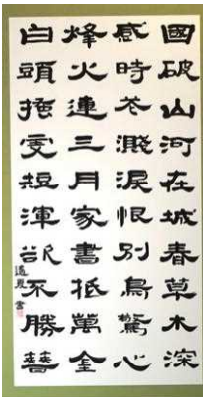 國破山河在城春草木深
感時花濺淚恨別鳥驚心
烽火連三月家書抵萬金
白頭搔更短渾欲不勝簪
書